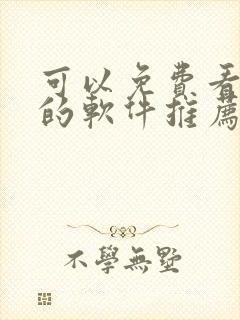 可以免費看
的軟件推薦
不學無墅